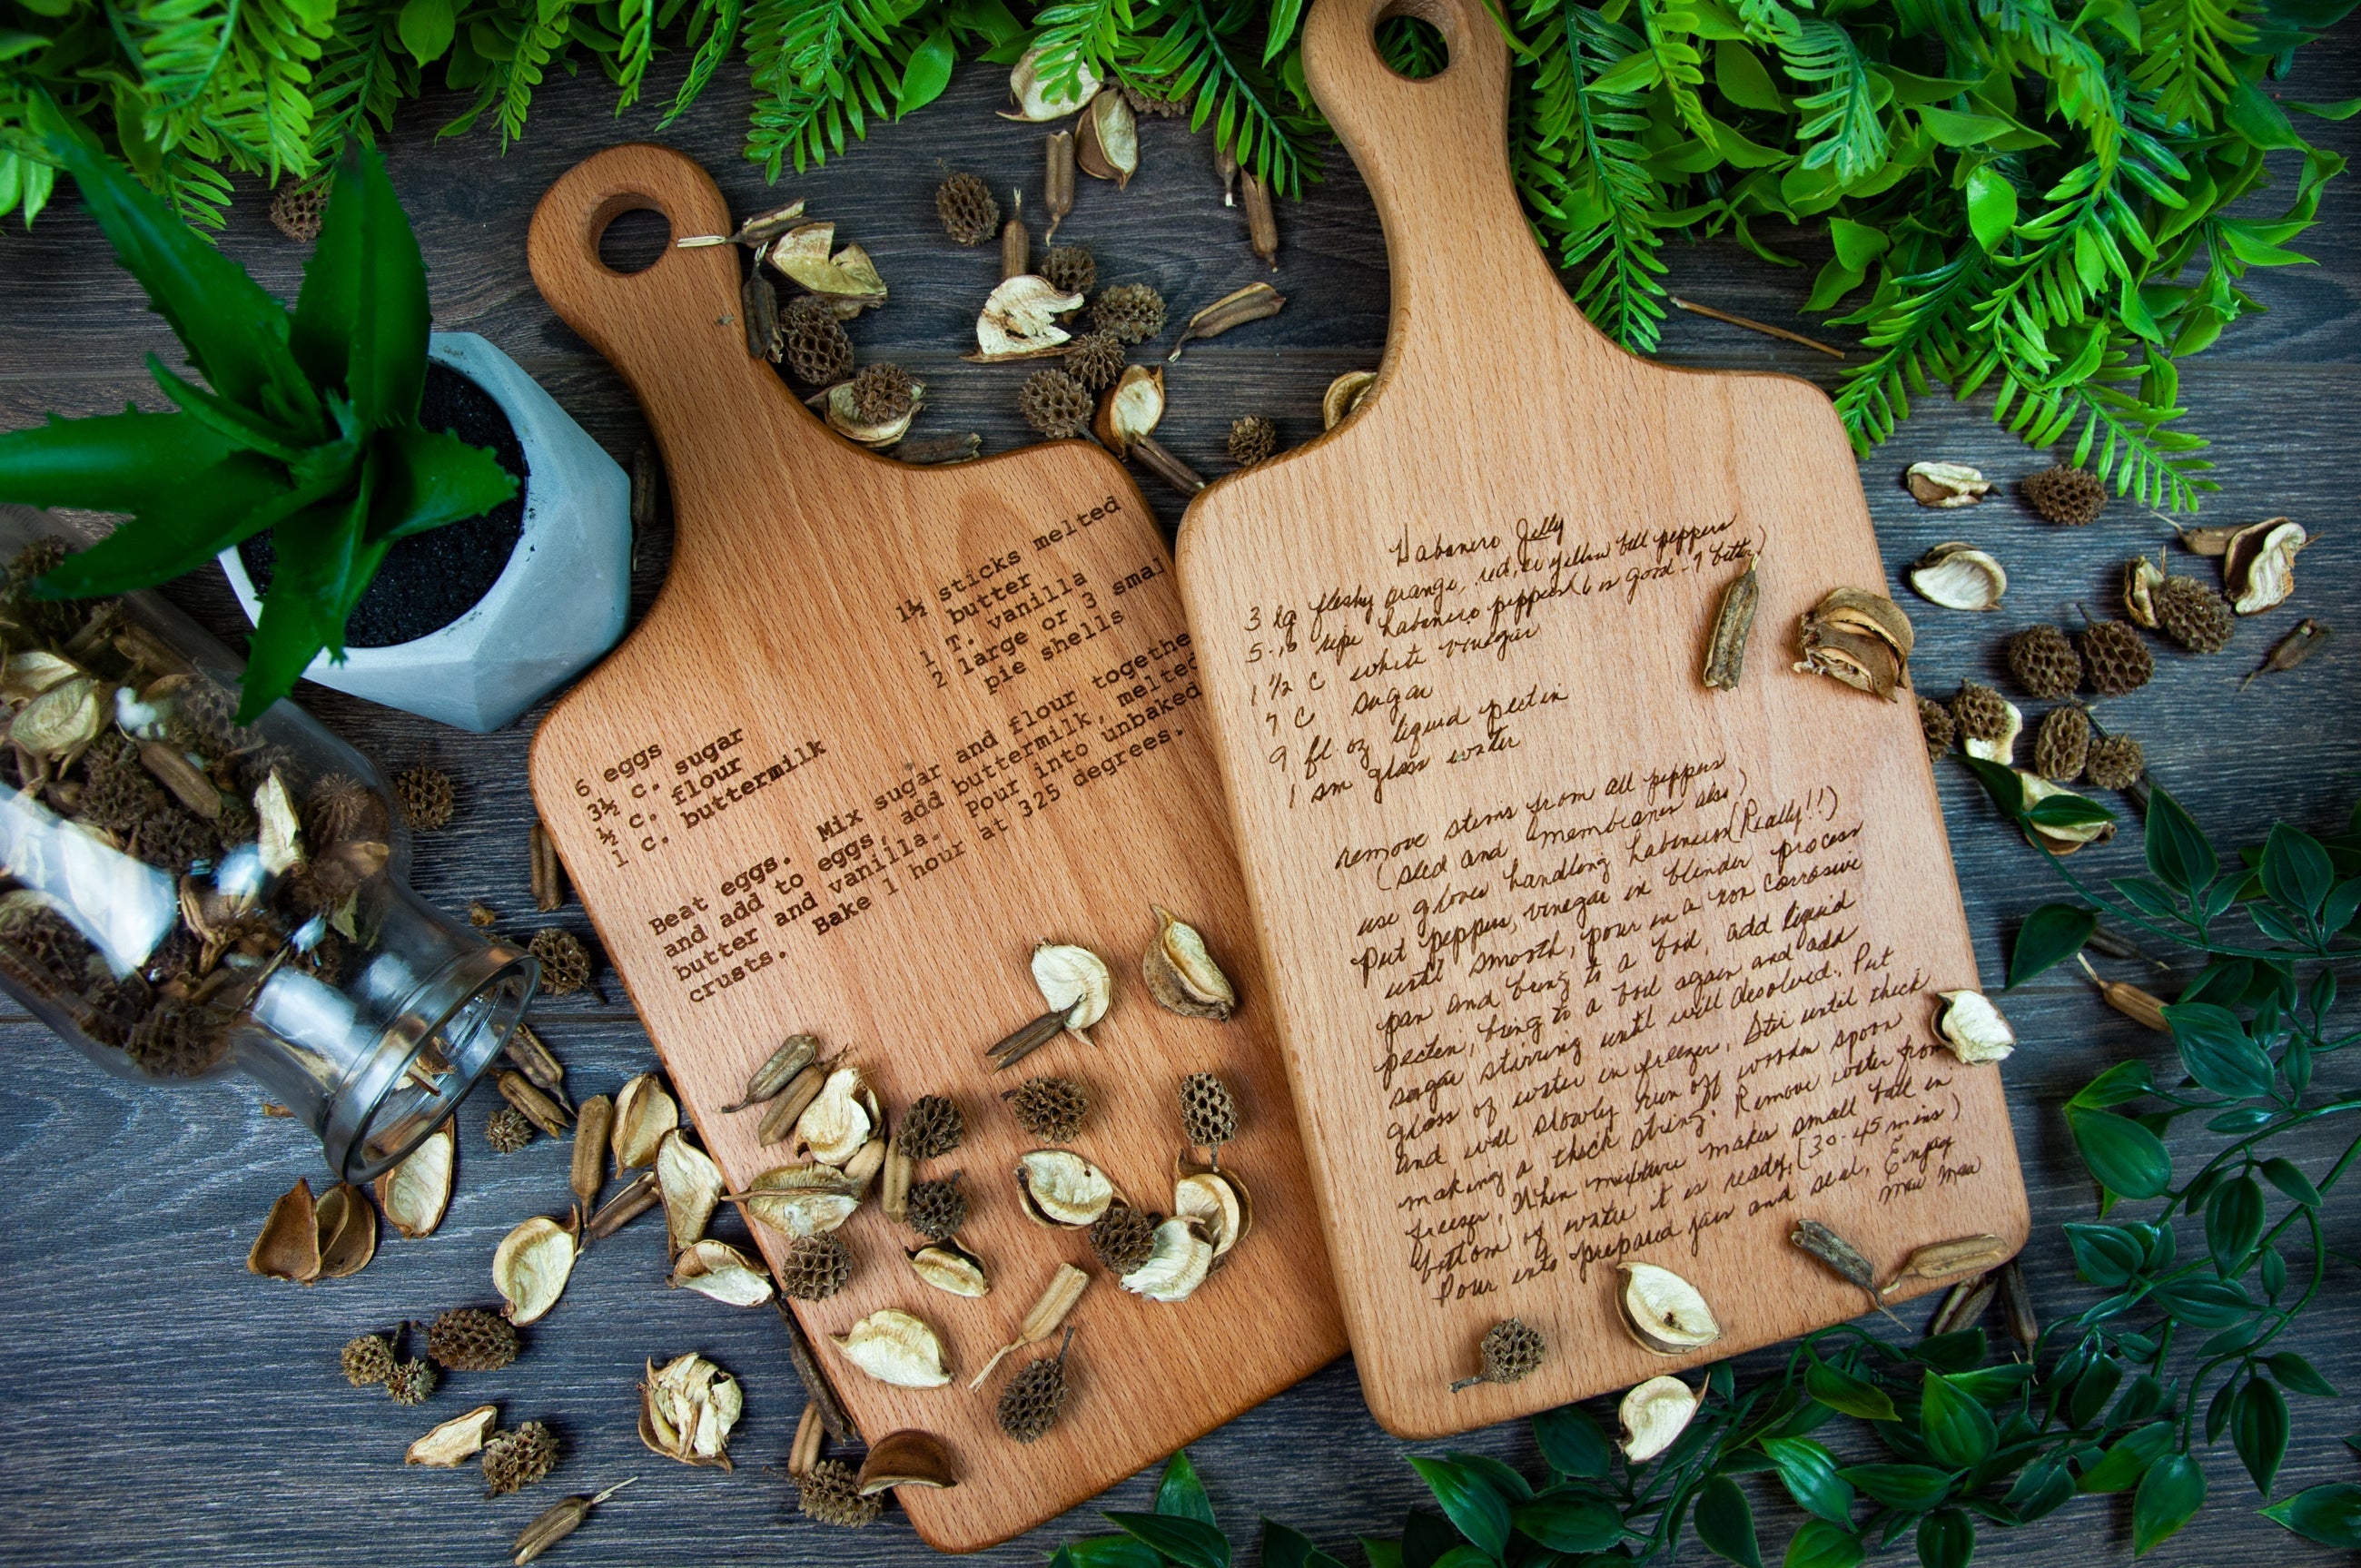 6 eggs
3½ c. sugar
½ c. flour
1 c. buttermilk
1½ sticks melted
butter
1 T. vanilla
2 large or 3 smal
pie shells
Beat eggs. Mix sugar and flour togethe
and add to eggs, add buttermilk, melted
butter and vanilla. Pour into unbaked
crusts. Bake 1 hour at 325 degrees.
Habanero Jelly
3 lg fleshy orange, red, or yellow bell peppers
5-10 ripe habanero peppers (6 is good - 7 better)
1 1/2 c white vinegar
7 c sugar
9 fl oz liquid pectin
1 sm glass water
remove stems from all peppers
(seed and membranes also)
use gloves handling habaneros (Really!!)
Put peppers, vinegar in blender process
until smooth, pour in a non corrosive
pan and bring to a boil, add liquid
pectin, bring to a boil again and add
sugar stirring until well desolved. Put
glass of water in freezer. Stir until thick
and will slowly run off wooden spoon
making a thick string. Remove water from
freezer, When mixture makes small ball in
bottom of water it is ready, (30-45 mins)
Pour into prepared jars and seal, Enjoy
Maw Maw